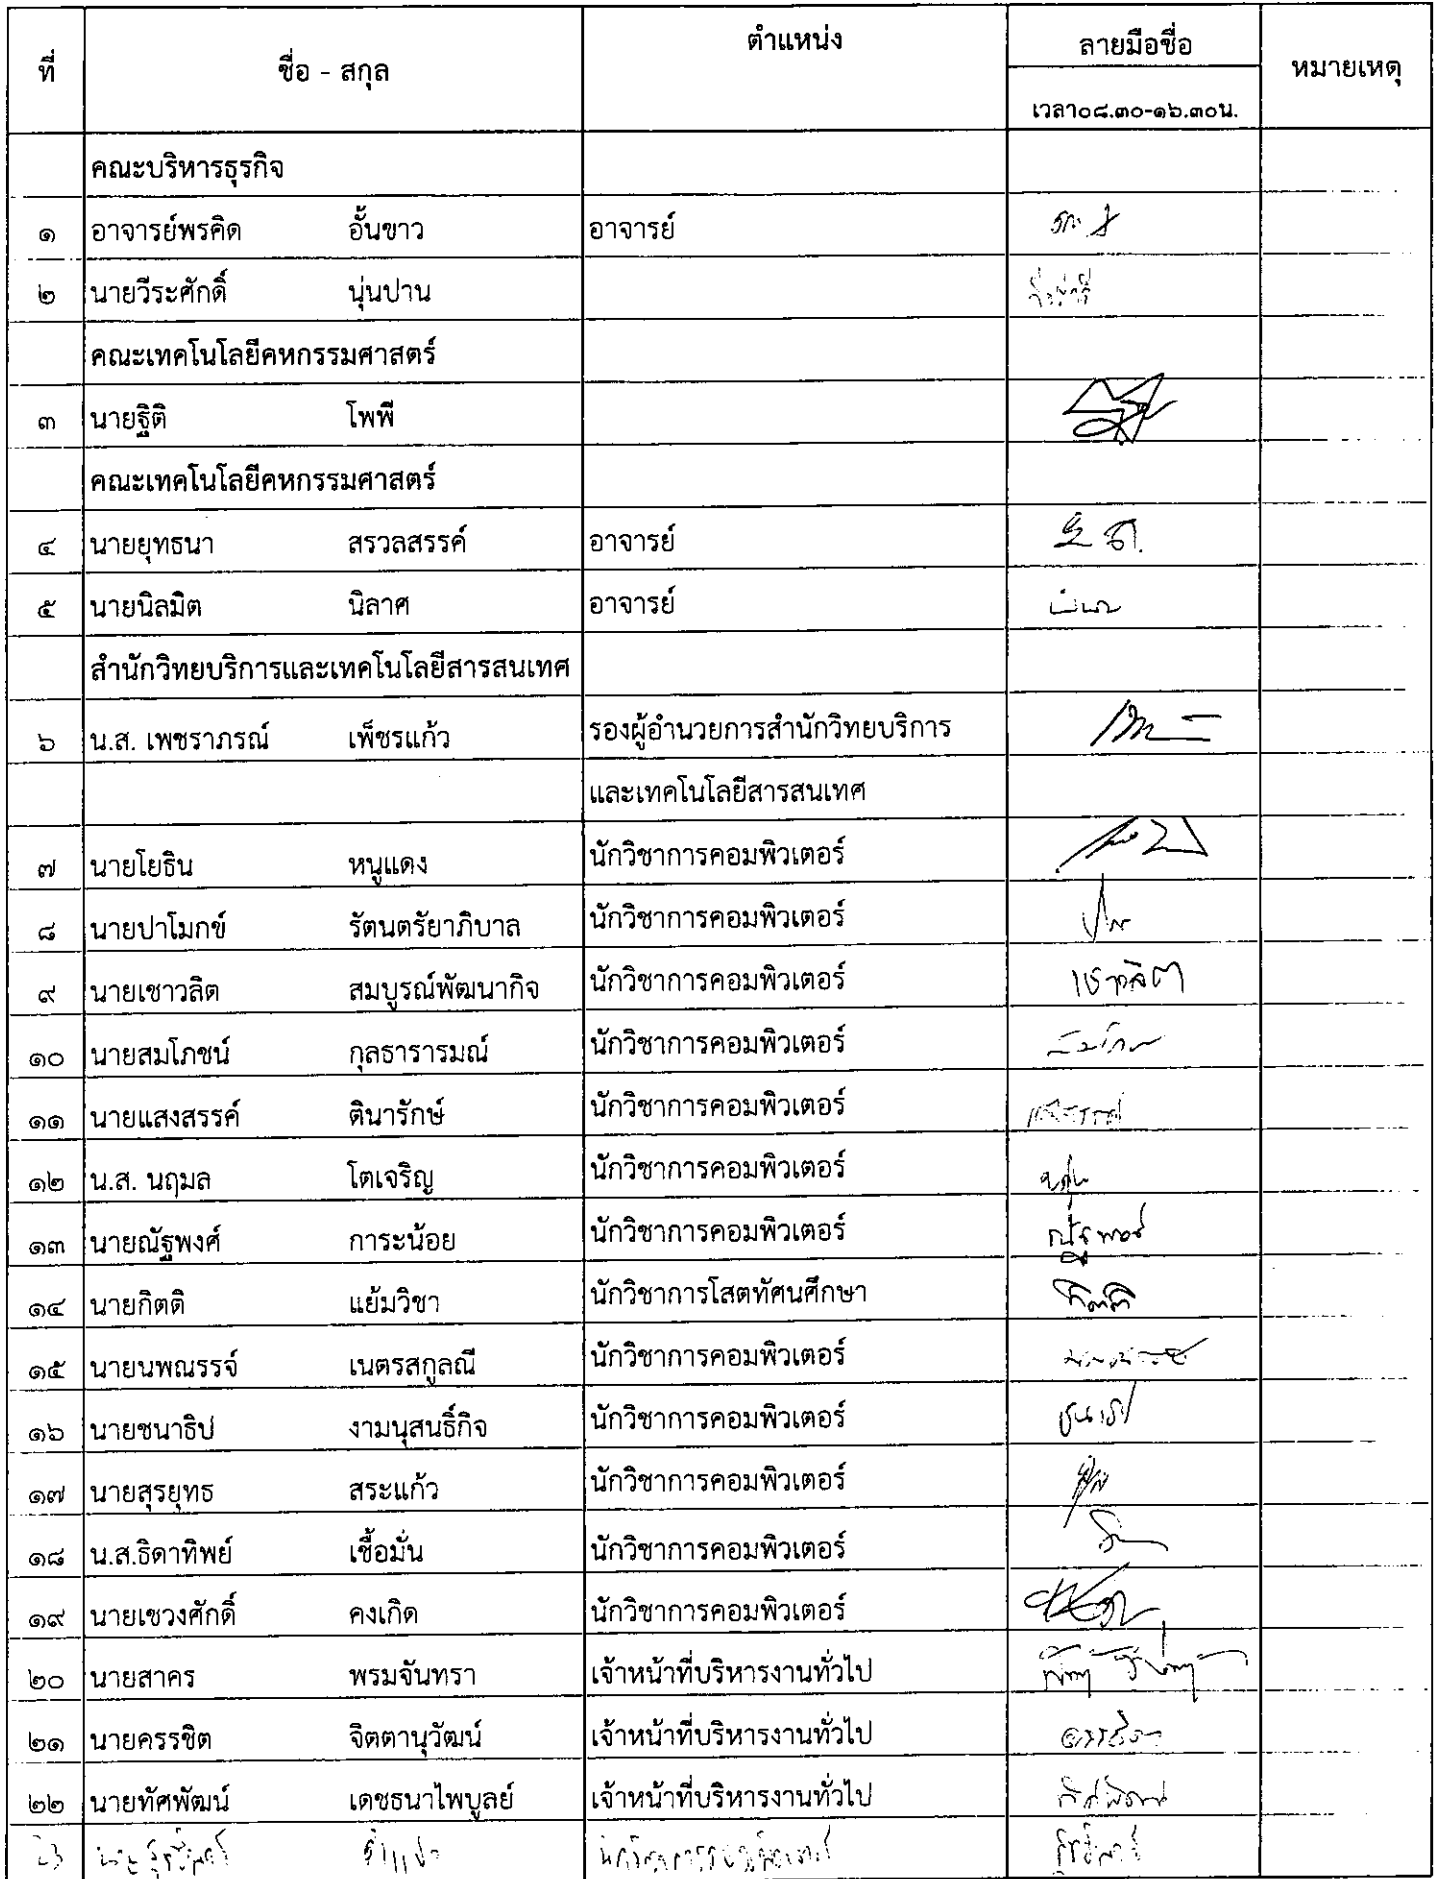 ที่ ชื่อ - สกุล ตำแหน่ง ลายมือชื่อ หมายเหตุ
เวลา๐๘.๓๐-๑๖.๓๐น.
คณะบริหารธุรกิจ
๑ อาจารย์พรคิด อั้นขาว อาจารย์
๒ นายวีระศักดิ์ นุ่นปาน
คณะเทคโนโลยีคหกรรมศาสตร์
๓ นายฐิติ โพพี
คณะเทคโนโลยีคหกรรมศาสตร์
๔ นายยุทธนา สรวลสรรค์ อาจารย์
๕ นายนิลมิต นิลาศ อาจารย์
สำนักวิทยบริการและเทคโนโลยีสารสนเทศ
๖ น.ส. เพชราภรณ์ เพ็ชรแก้ว รองผู้อำนวยการสำนักวิทยบริการ
และเทคโนโลยีสารสนเทศ
๗ นายโยธิน หนูแดง นักวิชาการคอมพิวเตอร์
๘ นายปาโมกข์ รัตนตรัยาภิบาล นักวิชาการคอมพิวเตอร์
๙ นายเชาวลิต สมบูรณ์พัฒนากิจ นักวิชาการคอมพิวเตอร์ เชาวลิต
๑๐ นายสมโภชน์ กุลธารารมณ์ นักวิชาการคอมพิวเตอร์
๑๑ นายแสงสรรค์ ตินารักษ์ นักวิชาการคอมพิวเตอร์
๑๒ น.ส. นฤมล โตเจริญ นักวิชาการคอมพิวเตอร์
๑๓ นายณัฐพงศ์ การะน้อย นักวิชาการคอมพิวเตอร์ ณัฐพงศ์
๑๔ นายกิตติ แย้มวิชา นักวิชาการโสตทัศนศึกษา กิตติ
๑๕ นายนพณรรจ์ เนตรสกูลณี นักวิชาการคอมพิวเตอร์
๑๖ นายชนาธิป งามนุสนธิ์กิจ นักวิชาการคอมพิวเตอร์
๑๗ นายสุรยุทธ สระแก้ว นักวิชาการคอมพิวเตอร์
๑๘ น.ส.ธิดาทิพย์ เชื้อมั่น นักวิชาการคอมพิวเตอร์
๑๙ นายเชวงศักดิ์ คงเกิด นักวิชาการคอมพิวเตอร์
๒๐ นายสาคร พรมจันทรา เจ้าหน้าที่บริหารงานทั่วไป
๒๑ นายครรชิต จิตตานุวัฒน์ เจ้าหน้าที่บริหารงานทั่วไป
๒๒ นายทัศพัฒน์ เดชธนาไพบูลย์ เจ้าหน้าที่บริหารงานทั่วไป